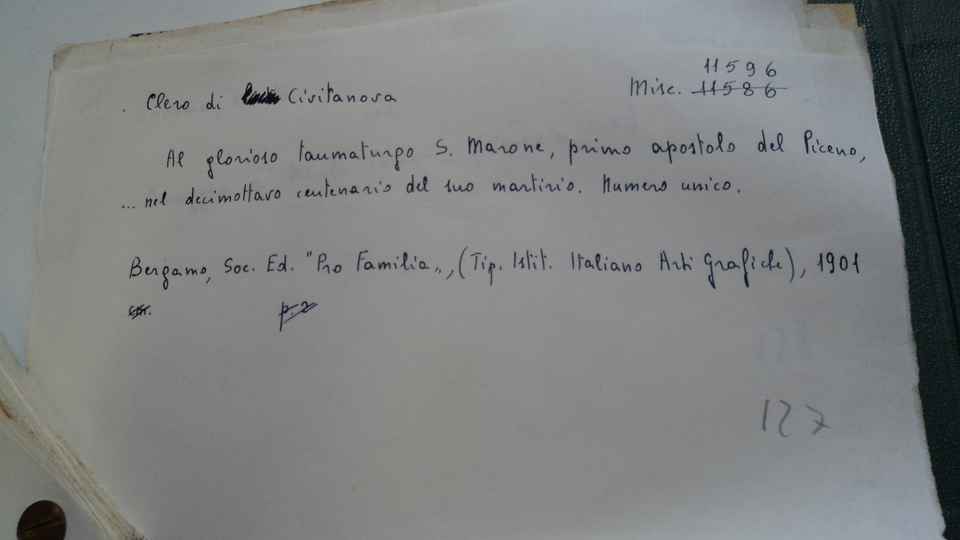 11596
. Clero di Civitanova Misc. 11586
Al glorioso taumaturgo S. Marone, primo apostolo del Piceno,
... nel decimottavo centenario del suo martirio. Numero unico.
Bergamo, Soc. Ed. "Pro Familia„, (Tip. Istit. Italiano Arti Grafiche), 1901
p. 2
127